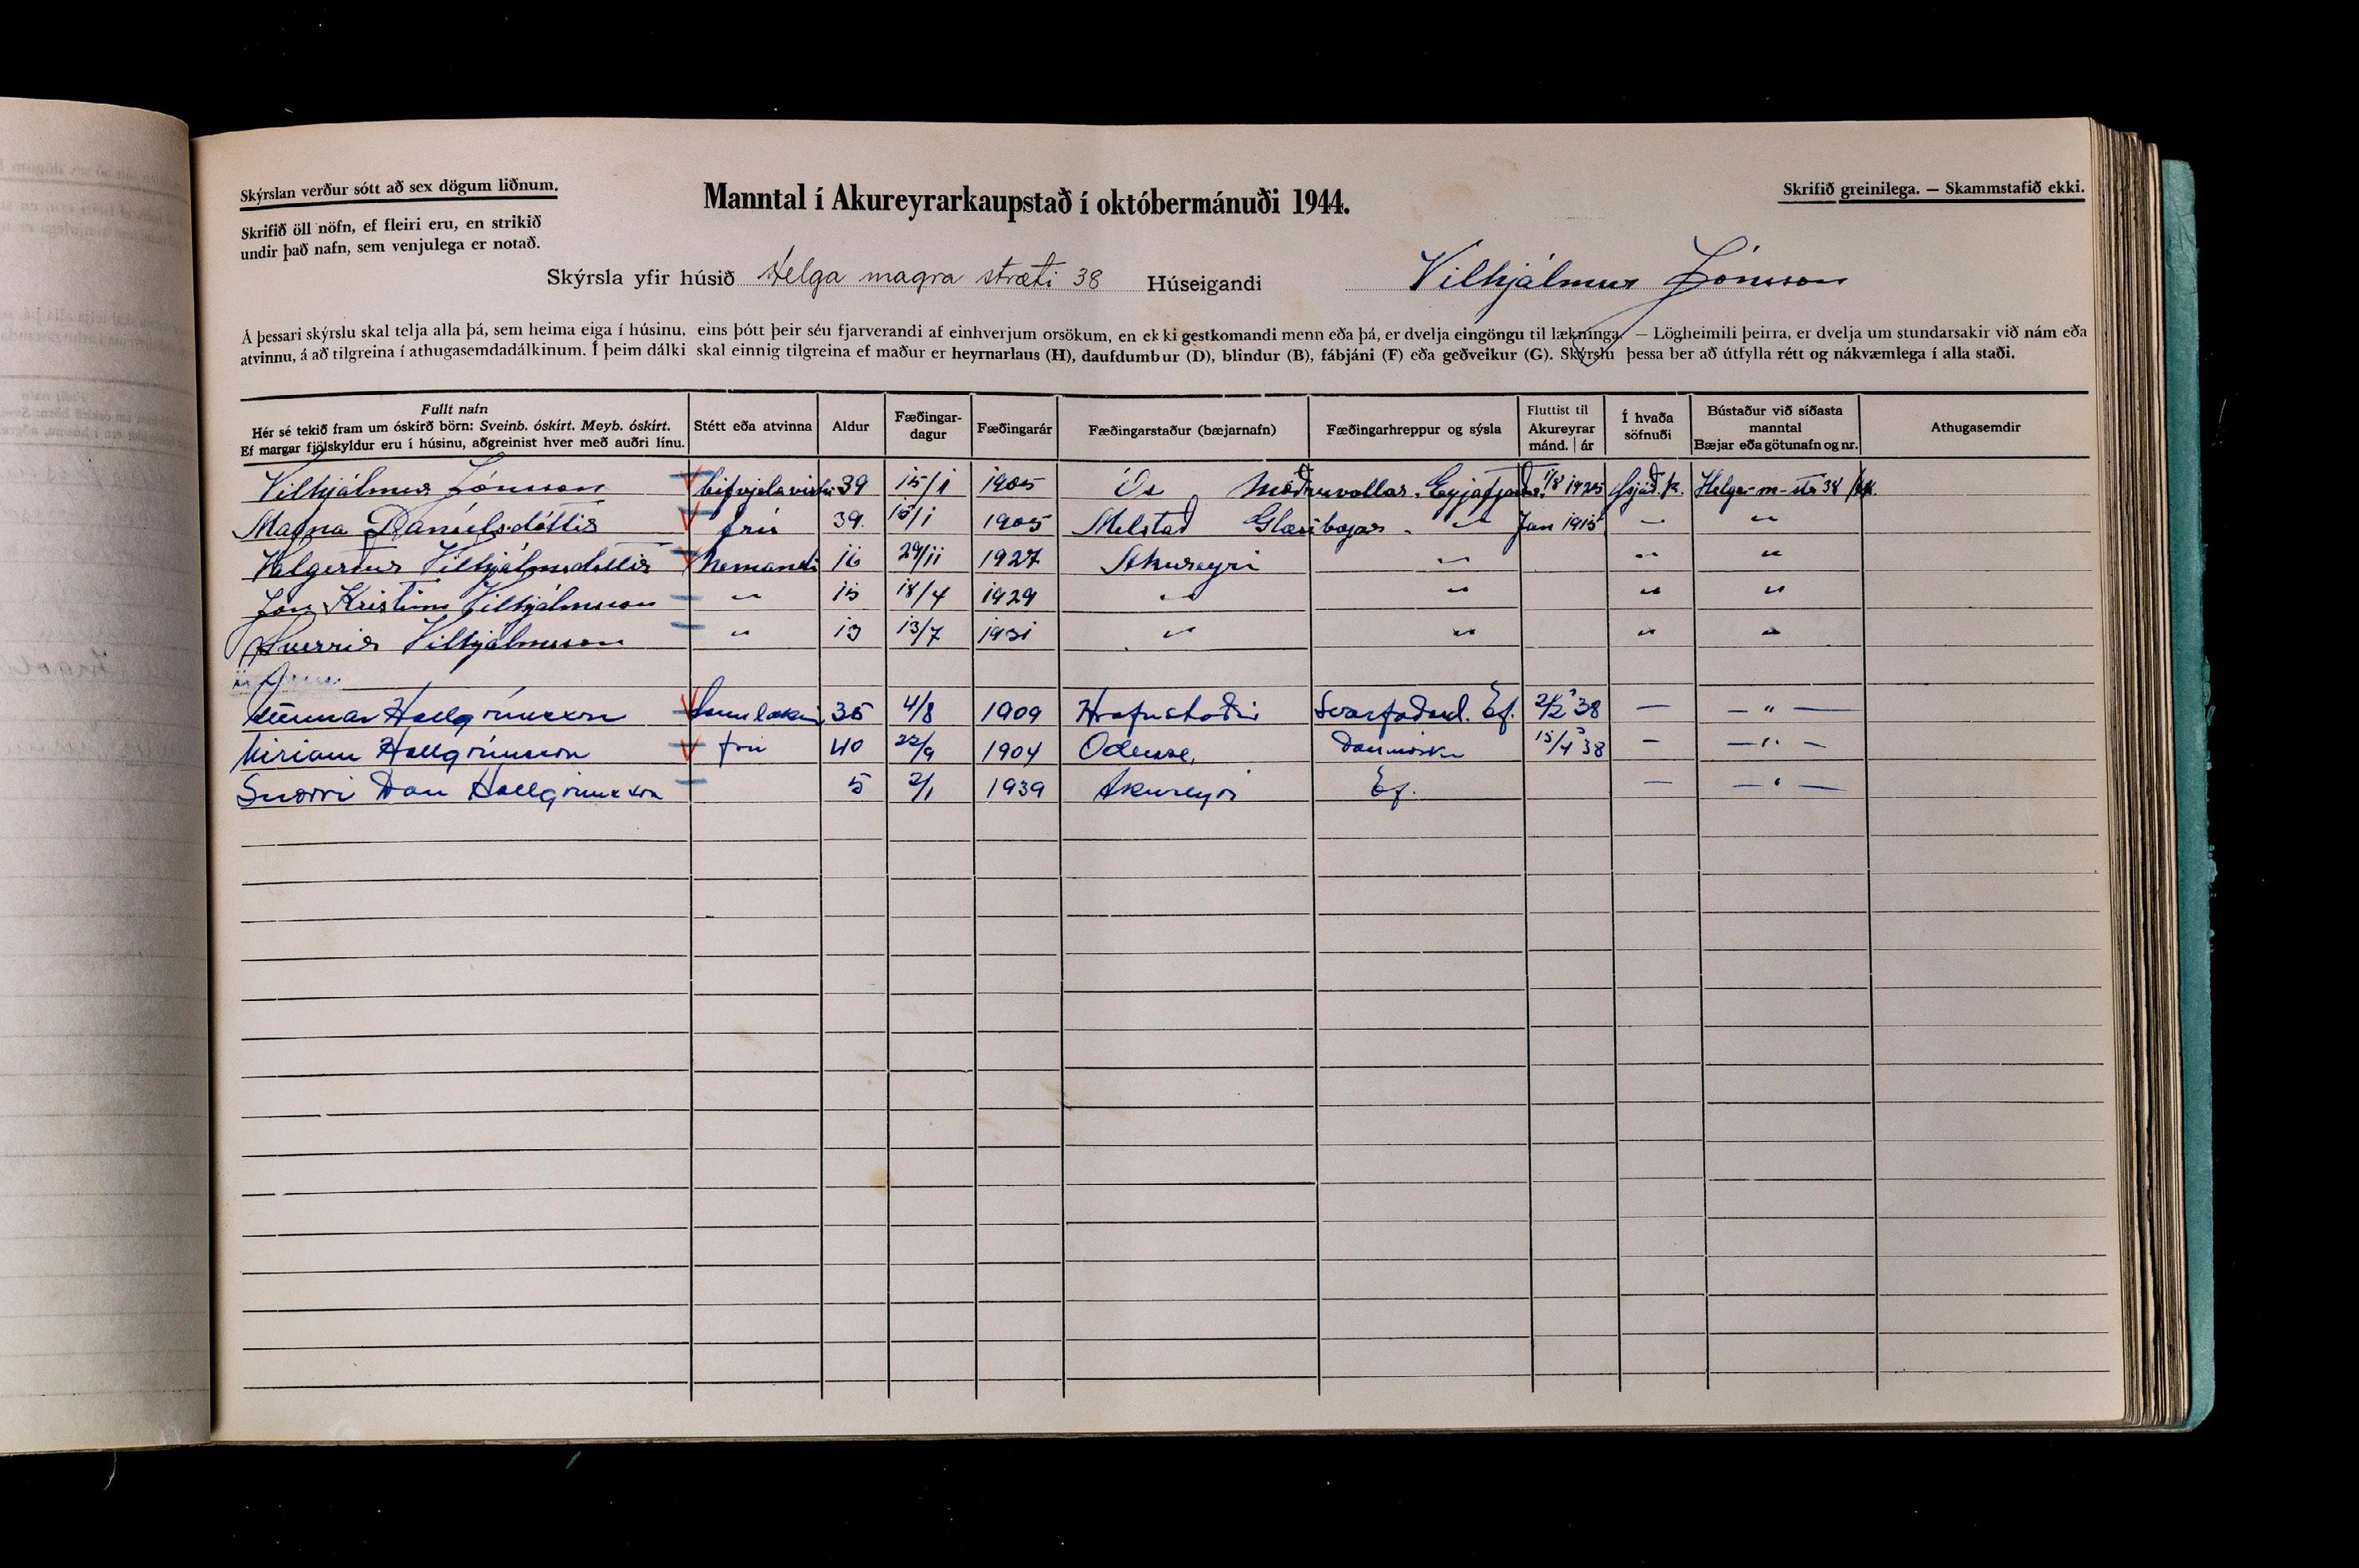 Skýrslan verður sótt að sex dögum liðnum.
Skrifið öll nöfn, ef fleiri eru, en strikið
undir það nafn, sem venjulega er notað.
Manntal í Akureyrarkaupstað í októbermánuði 1944.
Skrifið greinilega. — Skammstafið ekki.
Skýrsla yfir húsið Helga magra stræti 38 Húseigandi Vilhjálmur Jónsson
Á þessari skýrslu skal telja alla þá, sem heima eiga í húsinu, eins þótt þeir séu fjarverandi af einhverjum orsökum, en ekki gestkomandi menn eða þá, er dvelja eingöngu til lækninga. — Lögheimili þeirra, er dvelja um stundarsakir við nám eða
atvinnu, á að tilgreina í athugasemdadálkinum. Í þeim dálki skal einnig tilgreina ef maður er heyrnarlaus (H), daufdumbur (D), blindur (B), fábjáni (F) eða geðveikur (G). Skýrslu þessa ber að útfylla rétt og nákvæmlega í alla staði.
Fullt nafn
Hér sé tekið fram um óskírð börn: Sveinb. óskírt. Meyb. óskírt.
Ef margar fjölskyldur eru í húsinu, aðgreinist hver með auðri línu.
Stétt eða atvinna
Aldur
Fæðingar-
dagur
Fæðingarár
Fæðingarstaður (bæjarnafn)
Fæðingarhreppur og sýsla
Fluttist til
Akureyrar
mánd. | ár
Í hvaða
söfnuði
Bústaður við síðasta
manntal
Bæjar eða götunafn og nr.
Athugasemdir
Vilhjálmur Jónsson bifvjelavirki 39 15/1 1905 Ós Möðruvallar. Eyjafjarðs. 1/8 1925 Þjóð.k. Helga-m-str 38 Ak.
Magna Daníelsdóttir frú 39. 15/1 1905 Melstað Glæsibæjar. " Jan 1915 " "
Valgerður Vilhjálmsdóttir Nemandi 16 29/11 1927 Akureyri " " "
Jón Kristinn Vilhjálmsson " 15 18/4 1929 " " " "
Sverrir Vilhjálmsson " 13 13/7 1931 " " " "
Gunnar Hallgrímsson tannlæknir 35 4/8 1909 Hrafnsstaðir Svarfaðard. Ef. 2/2 38 — — " —
Miriam Hallgrímsson frú 40 22/9 1904 Odense, Danmörk 15/4 38 — — " —
Snorri Dan Hallgrímsson 5 2/1 1939 Akureyri Ef. — — " —